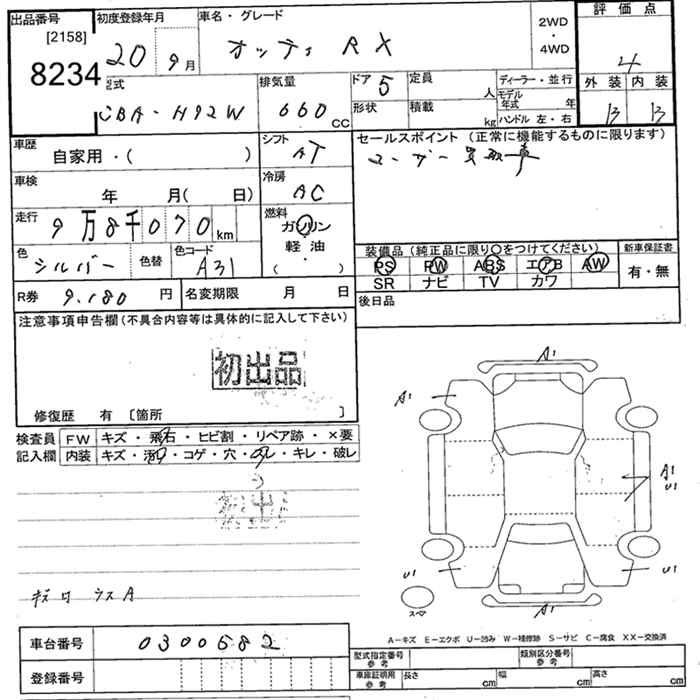 出品番号 初度登録年月 車名・グレード 2WD・4WD 評価点
[2158]
8234 20 9月 オッティ RX 4
型式 排気量 ドア 5 定員 人 ディーラー・並行 外装 内装
CBA-H92W 660 CC 形状 積載 kg モデル年式 年 B B
ハンドル 左・右
車歴 自家用・( ) シフト AT セールスポイント(正常に機能するものに限ります)
ユーザー買取車
車検 年 月( 日) 冷房 AC
走行 9万8千070km 燃料 ガソリン
軽油
( ・ )
色 シルバー 色替 色コード A31 装備品(純正品に限り○をつけてください) 新車保証書
PS PW ABS エアB AW 有・無
SR ナビ TV カワ
R券 9.180 円 名変期限 月 日 後日品
注意事項申告欄(不具合内容等は具体的に記入して下さい)
初出品
修復歴 有 〔箇所 〕
検査員 FW キズ・飛石・ヒビ割・リペア跡・×要
記入欄 内装 キズ・汚レ・コゲ・穴・・キレ・破レ
初出
A1
A1
A1
U1
U1 U1
スペア A1
A-キズ E-エクボ U-凹み W-補修跡 S-サビ C-腐食 XX-交換済
車台番号 0300682
型式指定番号 参考 類別区分番号 参考
登録番号 車庫証明用 参考 長さ cm 幅 cm 高さ cm